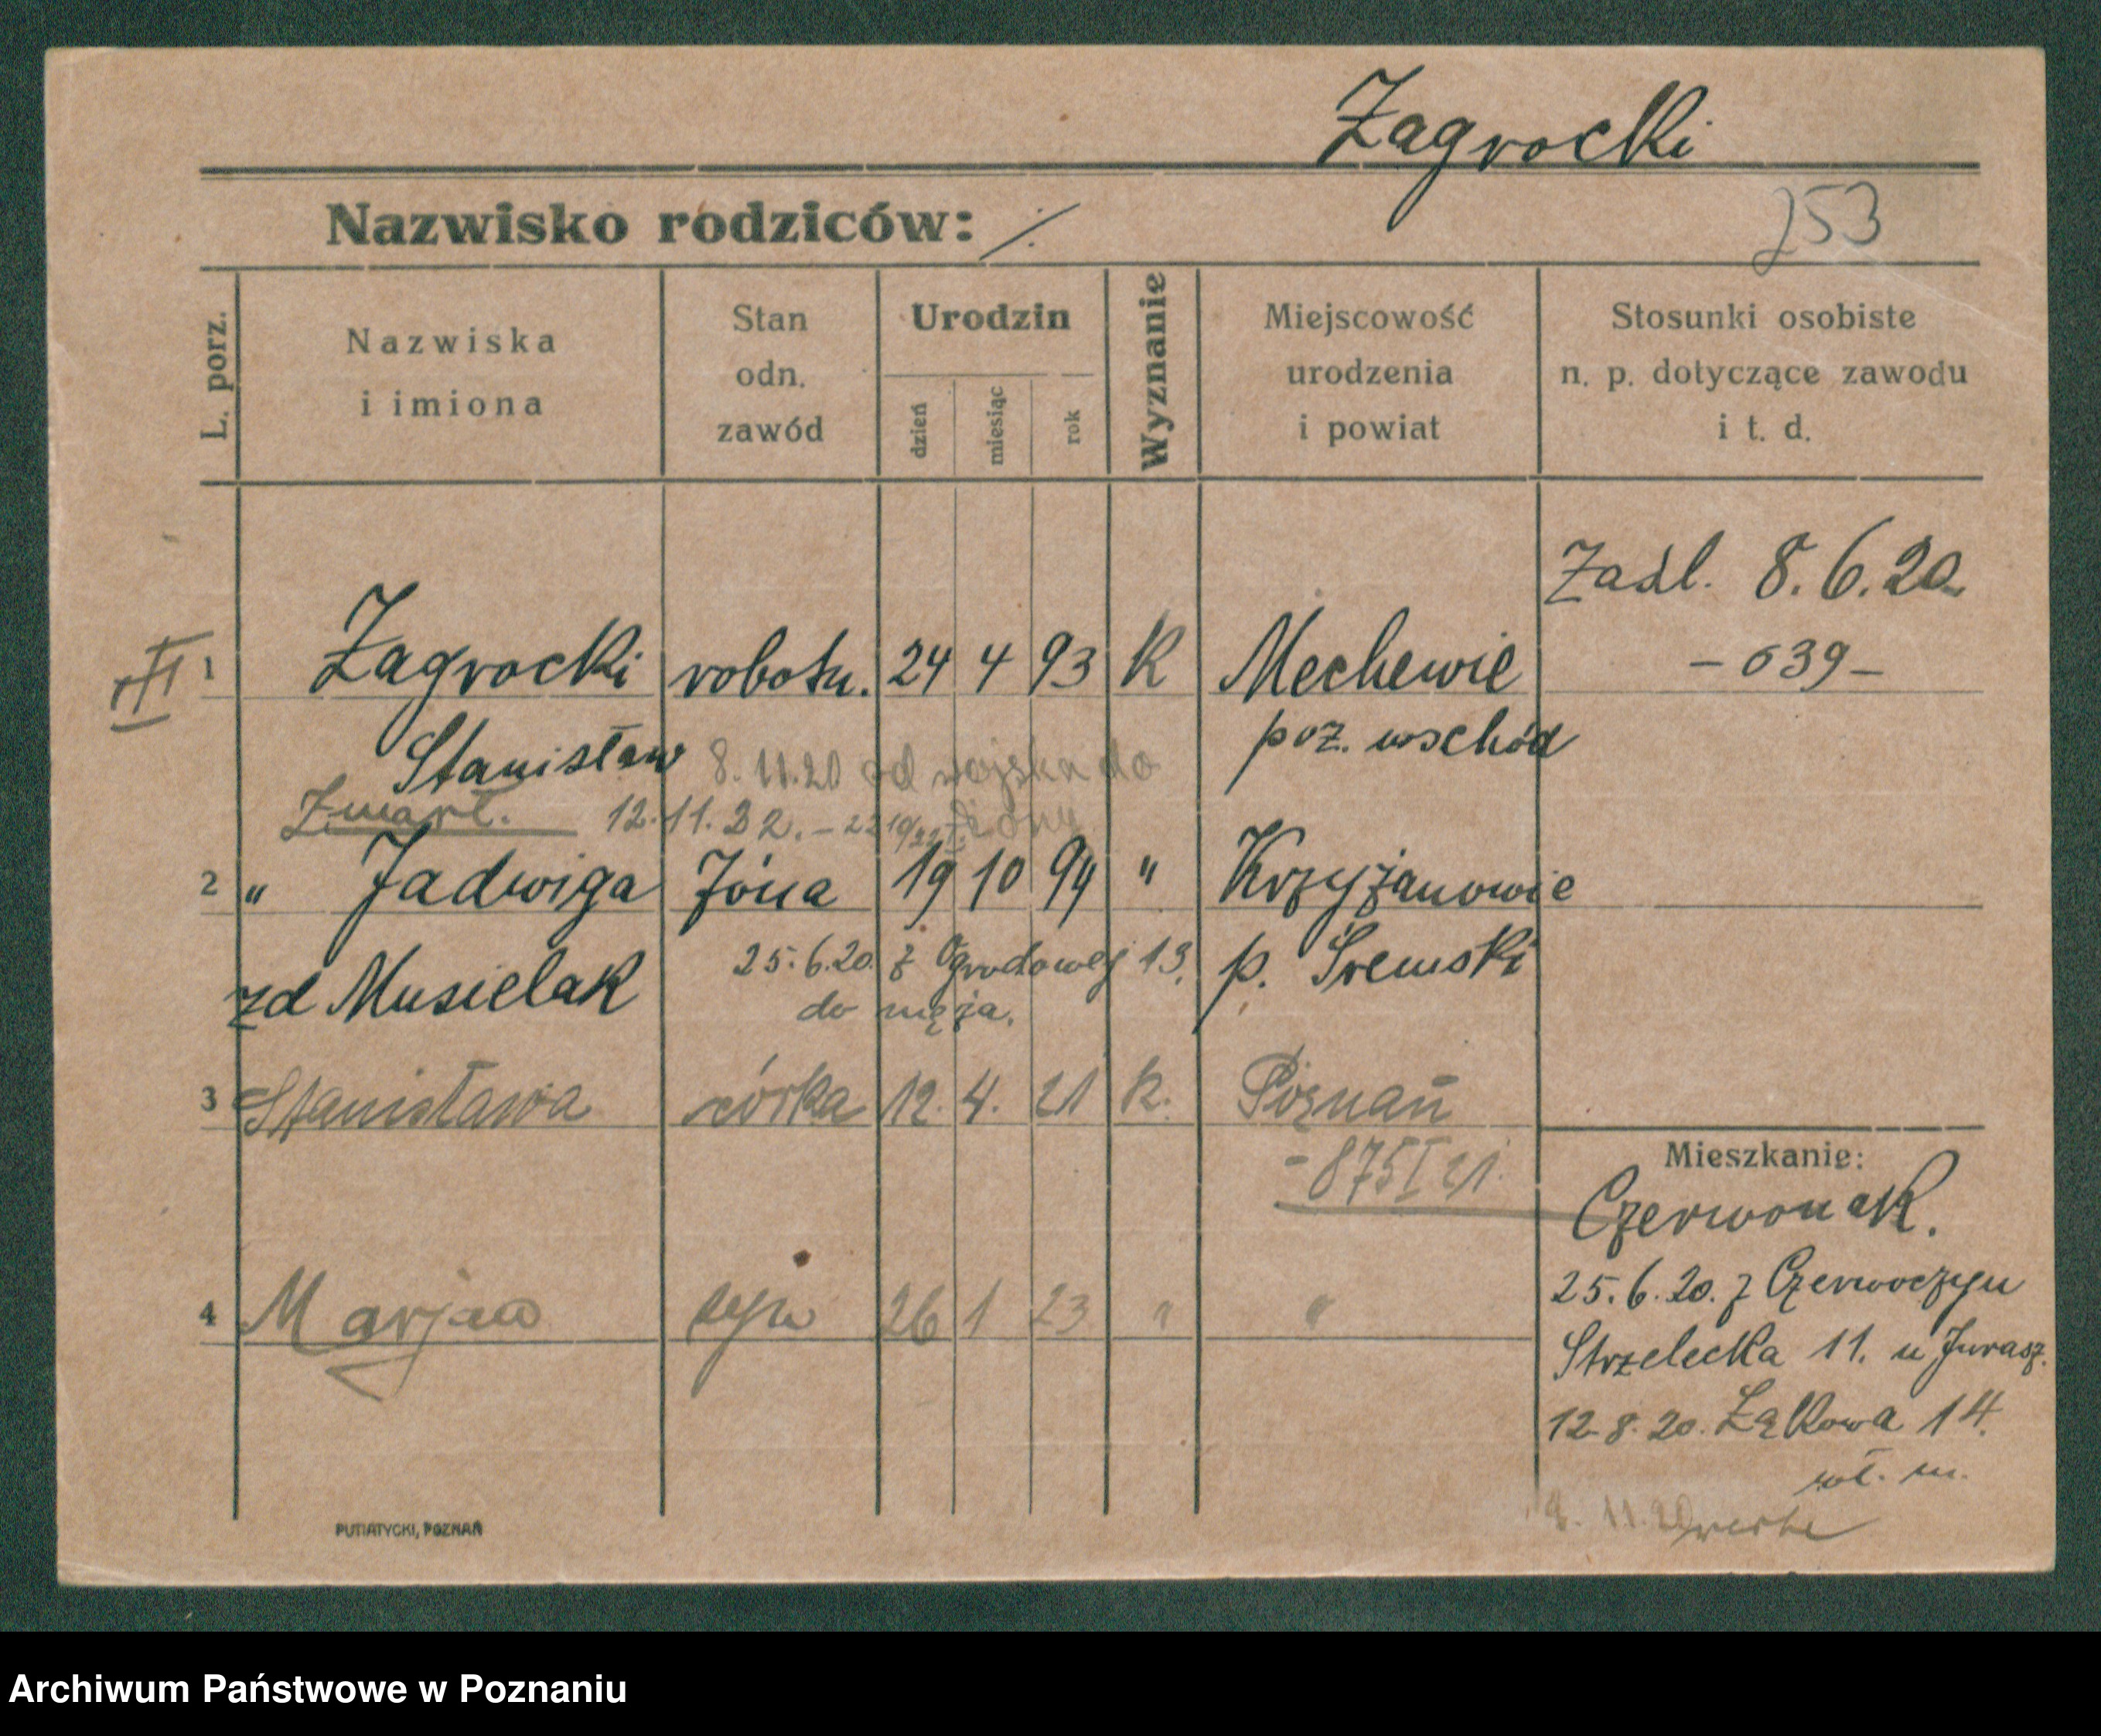 Zagrocki
Nazwisko rodziców: ./.
253
L. porz.
Nazwiska
i imiona
Stan
odn.
zawód
Urodzin
dzień
miesiąc
rok
Wyznanie
Miejscowość
urodzenia
i powiat
Stosunki osobiste
n. p. dotyczące zawodu
i t. d.
Zadl. 8.6.20.
1 Zagrocki robotn. 24 4 93 K Mechewie - 639 -
Stanisław 8.11.20 od wojska do poz. wschód
Zmarł. 12.11.22. żony
2 " Jadwiga żona 19 10 94 " Krzyżanowie
zd Musielak 25.6.20. z Ogrodowej 13. p. Śremski
do męża.
3 Stanisława córka 12. 4. 21 k. Poznań
- 875 I 21.
Mieszkanie:
Czerwonak.
4 Marjan syn 26 1 23 " "
25.6.20. z
Strzelecka 11. u Jurasz.
12.8.20. Łąkowa 14.
wł. m.
8. 11.20
PUTIATYCKI, POZNAŃ
Archiwum Państwowe w Poznaniu